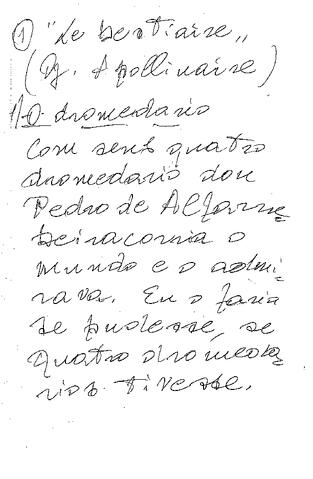 ① "Le bestiaire"
(G. Apollinaire)
1) O dromedario
Com seus quatro
dromedario don
Pedro de Alfarru
beiracorria o
mundo e o admi-
rava. Eu o faria
se pudesse, se
quatro dromeda
rios tivesse.